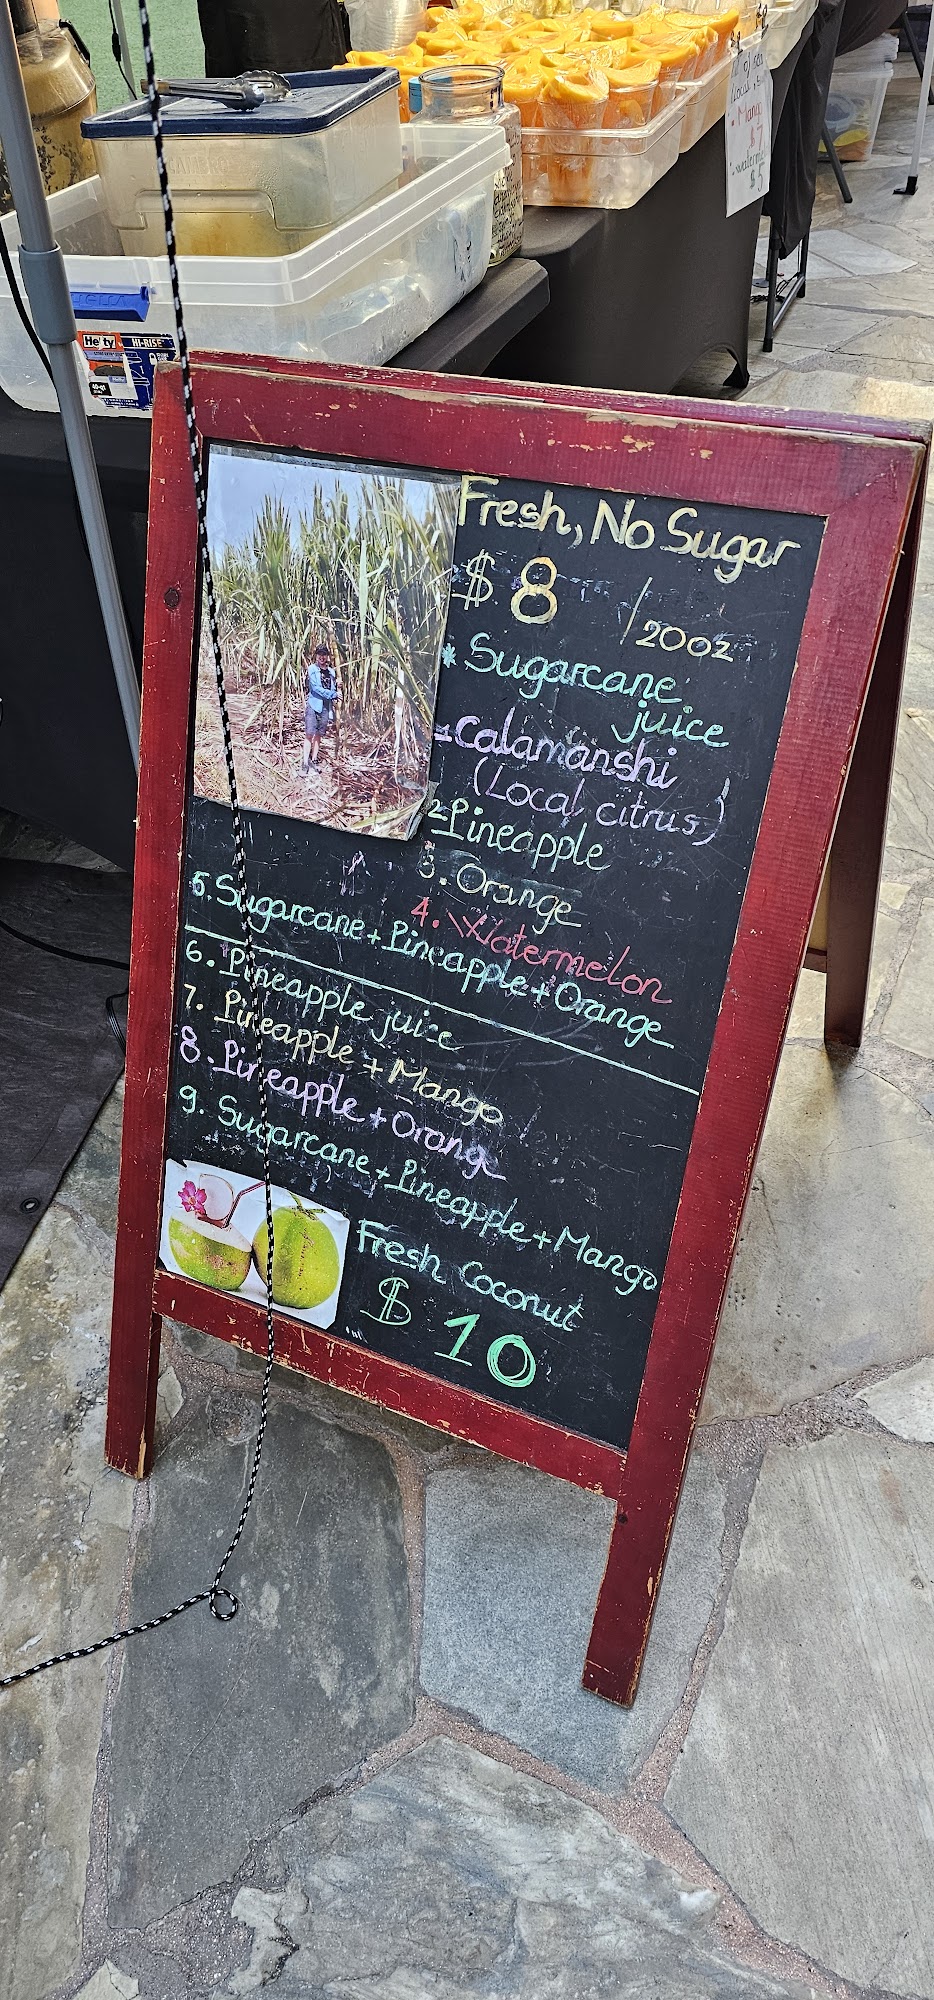 Hefty
HI-RISE
Local
$7
$5
Fresh, No Sugar
$8 /20oz
* Sugarcane
juice
1-Calamanshi
(Local citrus)
2-Pineapple
3. Orange
4. Watermelon
5. Sugarcane+Pineapple+Orange
6. Pineapple juice
7. Pineapple + Mango
8. Pineapple + Orang
9. Sugarcane+Pineapple+Mango
Fresh Coconut
$ 10